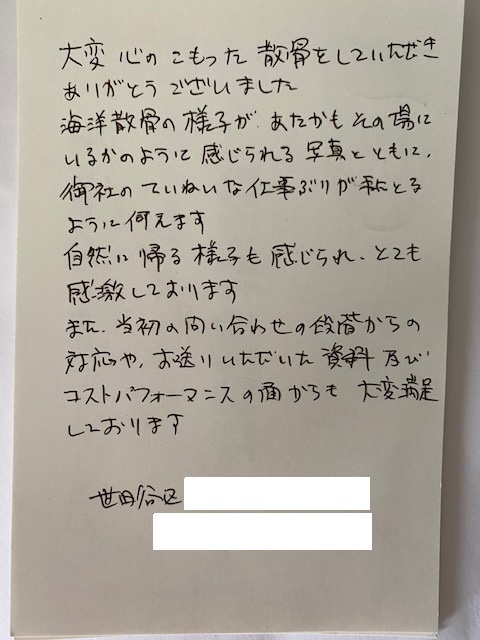 大変 心の こもった 散骨をしていただき
ありがとう ございました
海洋散骨の 様子が、あたかも その場に
いるかのように 感じられる 写真と ともに、
御社の ていねいな 仕事ぶりが 手にとる
ように 伺えます
自然に 帰る 様子も 感じられ、とても
感激しております
また、当初の問い合わせの段階からの
対応や、お送りいただいた 資料 及び
コストパフォーマンスの面からも 大変満足
しております
世田谷区